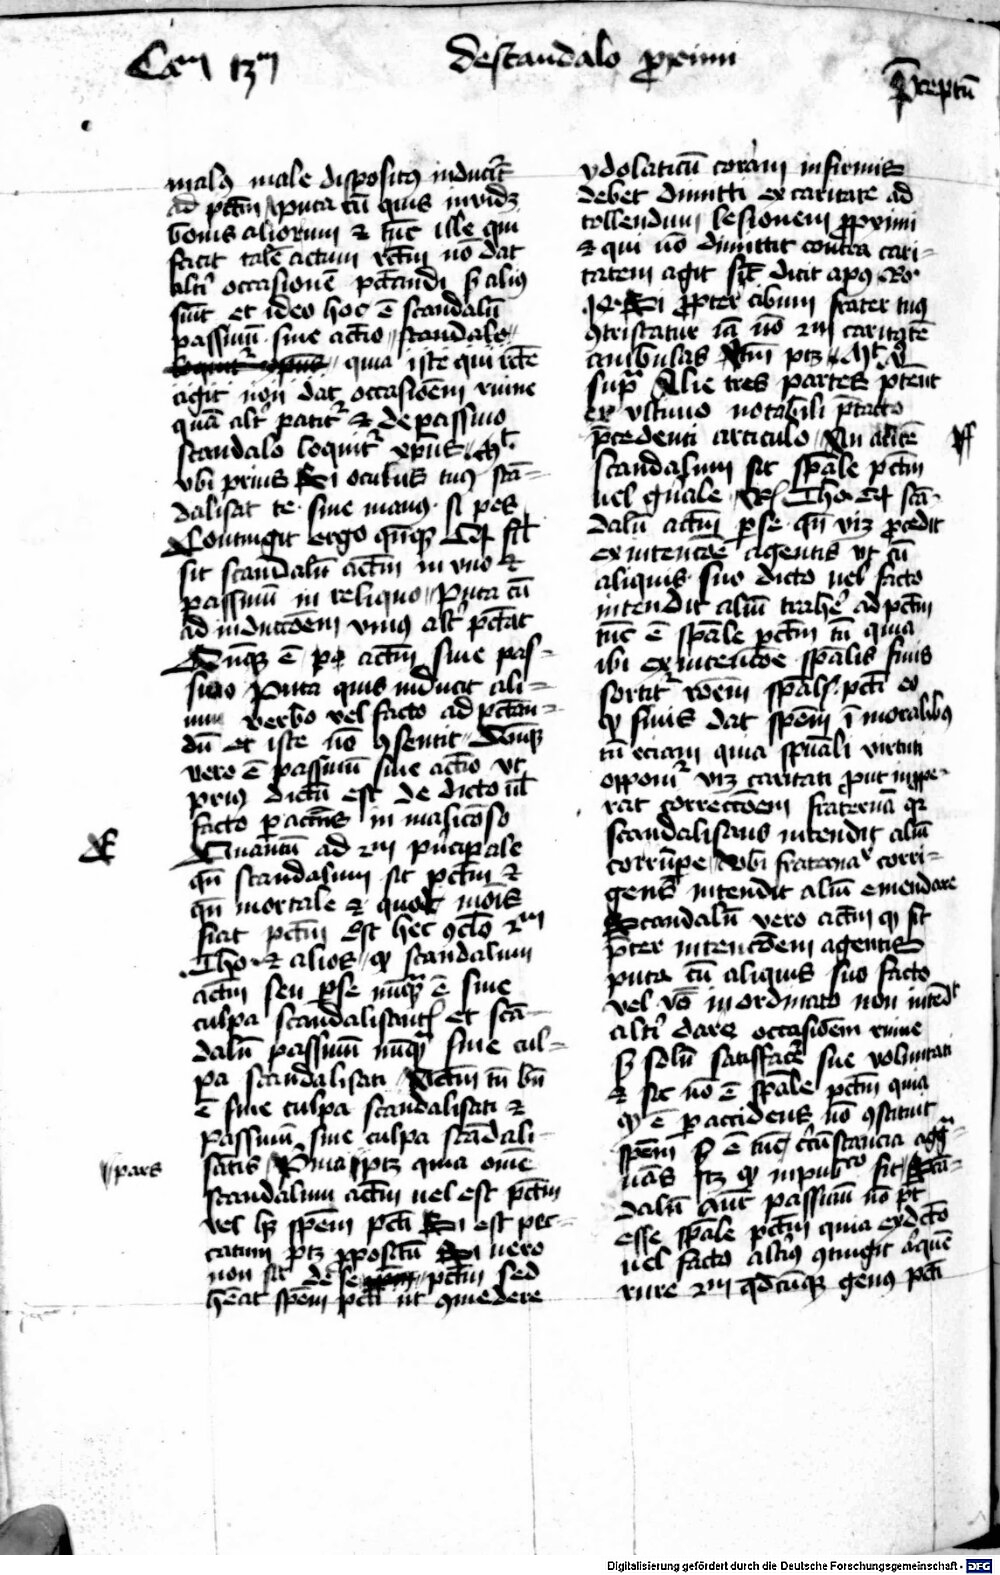 Cam 13m
de scandalo proximi
Preceptū
malꝰ male dispositꝰ inducit
ad pctm puta cū quis invidꝫ
bonis aliorum et tūc ille qui
facit talē actum rctm nō dat
altī occasionē pctandi sꝫ aliꝰ
sūit et ideo hoc ē scandalū
passiuū siue actīo scandalo
quia iste qui rctē
agit non dat occasiōem ruine
quā alt' patit' et de passiuo
scandalo loquit' xpūs Mt
vbi prius Si oculus tuꝰ scā=
dalisat te siue manꝰ sꝫ pes
Contingit ergo qnꝫ
sit scandalū actm in vno et
passiuū in reliquo Puta cū
ad inductōem vniꝰ alt' pctat
Qnꝫ ē actm siue pas=
siuo Puta quis inducit ali=
um verbo vel facto ad pctan=
dū et iste nō ꝯsentit Qnꝫ
vero ē passiuū siue actīo vt
prius dictū est de dicto ul
facto in malicōso
Quantū ad 2m principale
qn scandalum sit pctm et
qn mortale et quot mōis
fiat pctm Est hec ꝯclo 2m
Tho et alios qꝫ scandalum
actm seu per se nūqꝫ ē sine
culpa scandalisantis et scā=
dalū passiuū nūqꝫ sine cul=
pa scandalisati Actm tn bn
ē sine culpa scandalisati et
passiuū sine culpa scādali=
sātis Prima ptꝫ quia omē
pars
scandalum actm uel est pctm
vel hꝫ spēm pcti Si est pec=
catum ptꝫ ꝓpositū Si uero
non sit de se pctm sed
heat spēm pcti ut ꝯmedere
ydolaticū coram infirmis
debet dimitti ex caritate ad
tollendum lesionem proximi
et qui nō dimittit contra cari=
tatem agit sic dicit apꝰ Ro
14 Si propter cibum frater tuꝰ
ꝯtristatur iā nō 2m caritatē
ambulas
supra Alie tres partes ptent
ex vltimo notabili
precedenti articulo An
scandalum sit spāle pctm
uel gnāle Tho scā=
dalū actm per se qn viꝫ procedit
ex intencōe agentis vt cū
aliquis suo dicto uel facto
intendit aliū trahere ad pctm
tūc ē spāle pctm tū quia
ibi ex intencōe spālis finis
sortit' rōem spālis pcti eo
qꝫ finis dat spēm ī moralibus
tū eciam quia spūali virtuti
opponit' viꝫ caritati put impe=
rat correctōem fraternā qꝛ
scandalisans intendit aliū
corrūpe vbi fraterna corri=
gens intendit alium emendare
Scandalū vero actm qꝫ fit
preter intencōem agentis
puta cū aliquis suo facto
vel inordinato non intēdit
altī dare occasiōem ruine
sꝫ solū satisfacere sue voluntati
et sic nō ē spāle pctm quia
qꝫ ē per accidens nō ꝯstituit
spēm sꝫ ē tūc circūstancia aggra=
uās
dalū Aut passiuū nō pt
esse spāle pctm quia ex dicto
uel facto altiꝰ ꝯtingit
ruere 2m qdcūqꝫ genus pcti
Digitalisierung gefördert durch die Deutsche Forschungsgemeinschaft - DFG